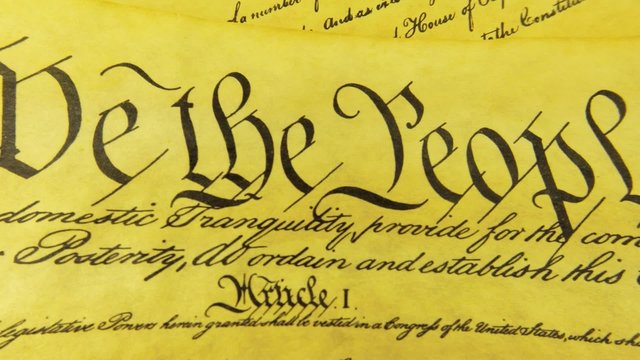 a number
And as in
House of
the Constitu
We the People
domestic Tranquility, provide for the com
Posterity, do ordain and establish this
Article I
legislative Powers herein granted shall be vested in a Congress of the United States, which sha